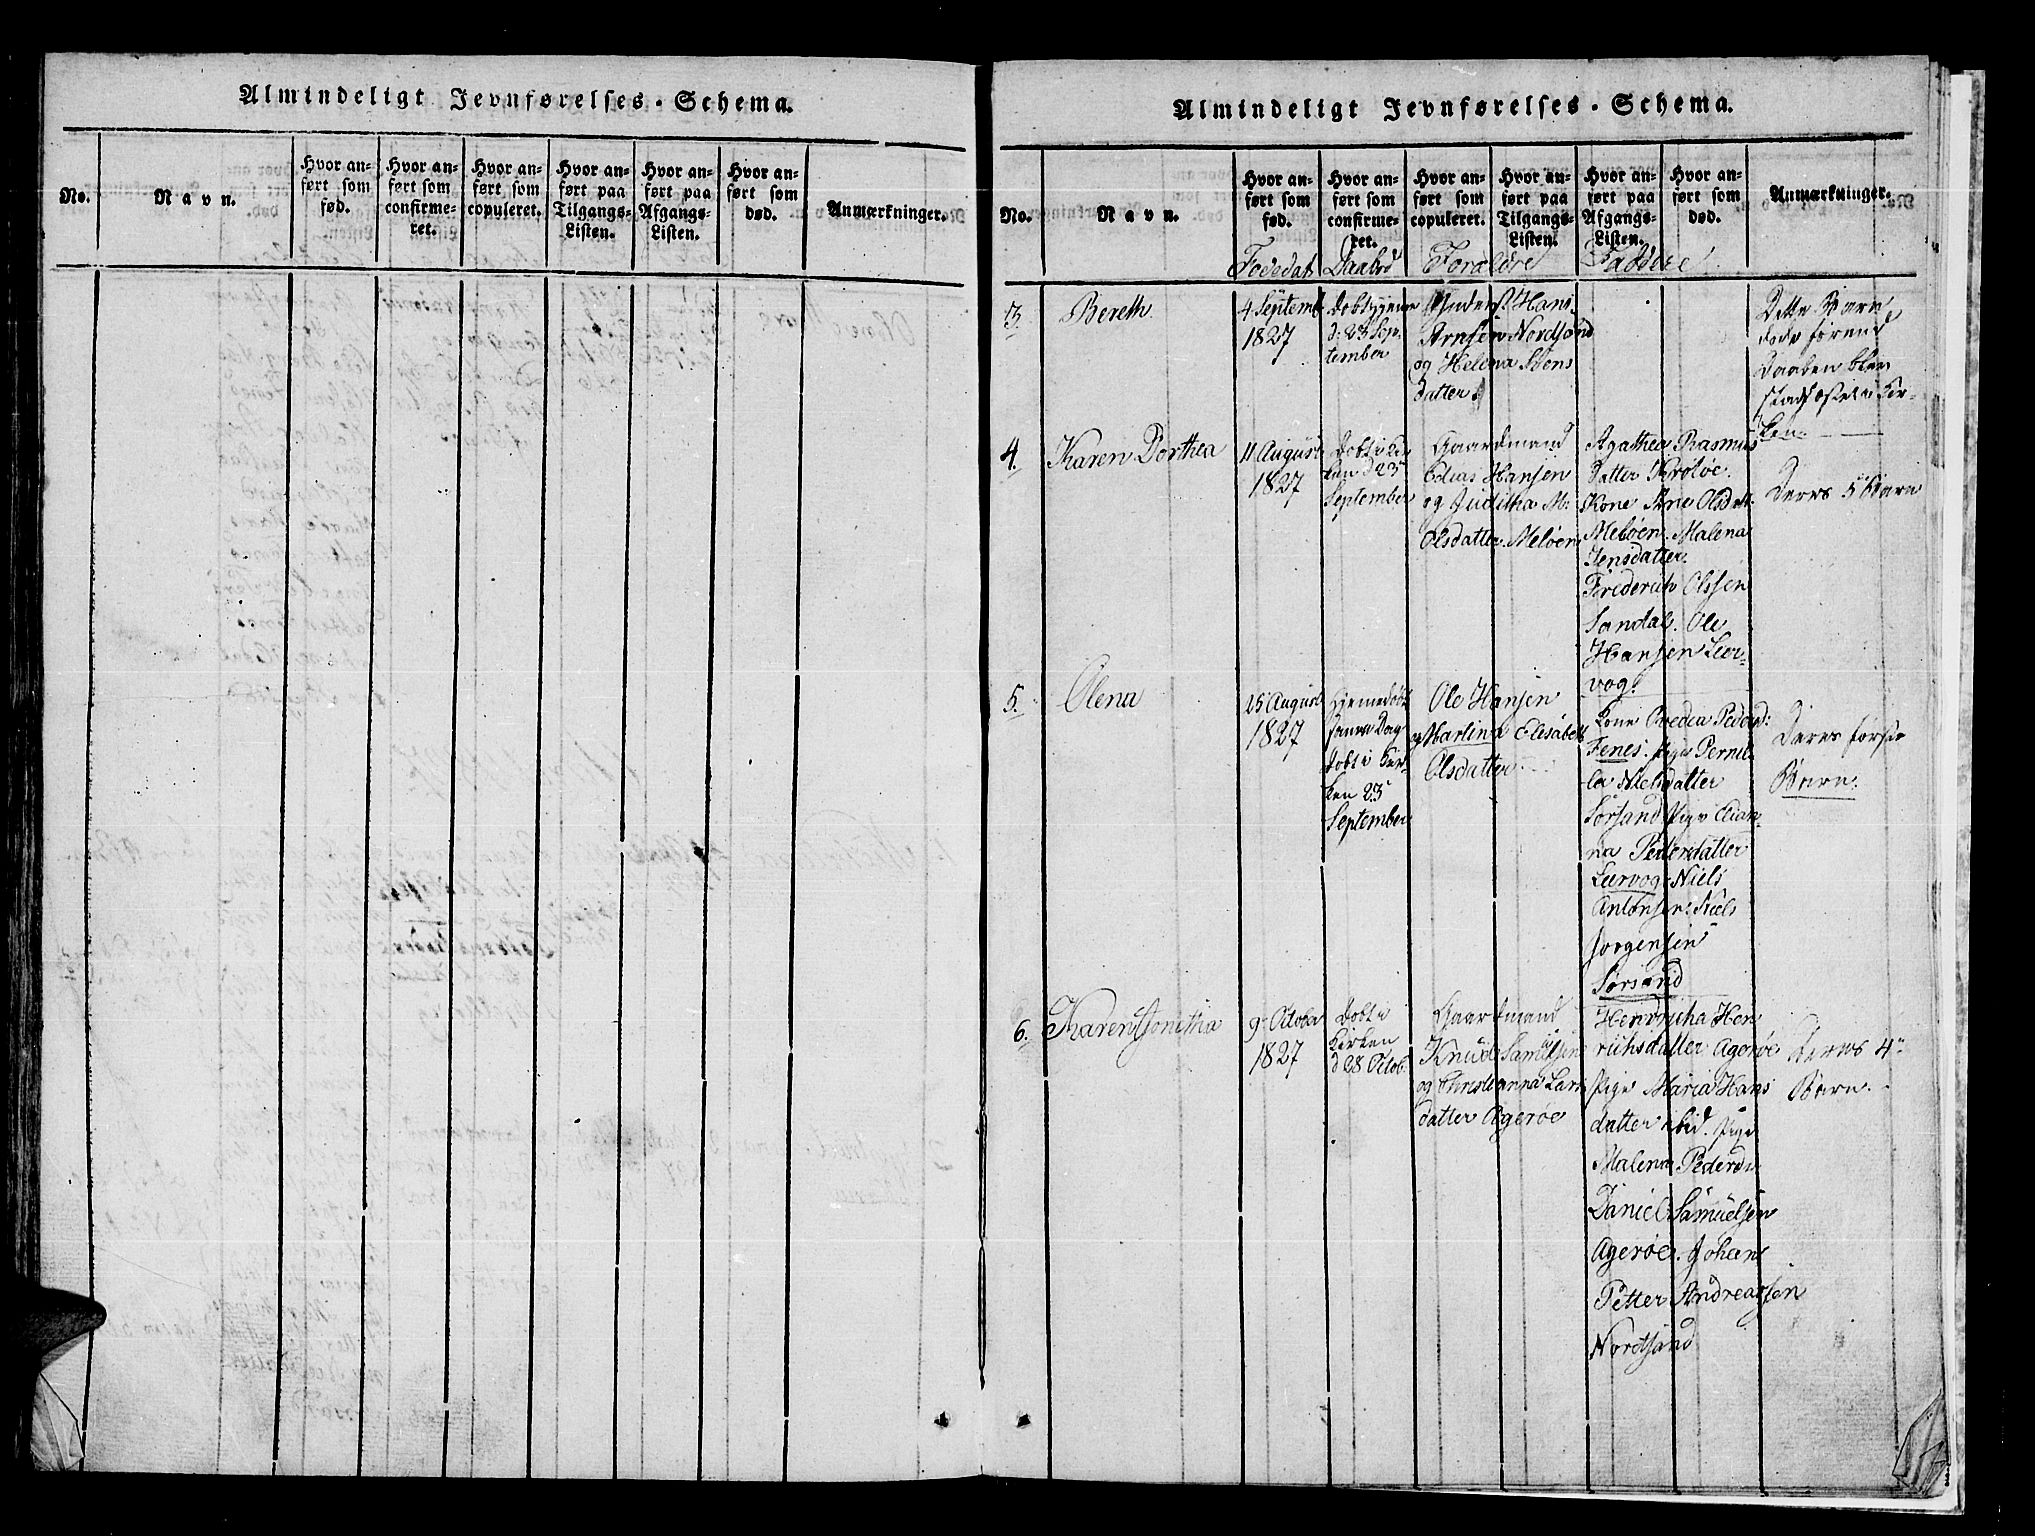 Almindeligt Jevnførelses-Schema.
No.
Navn.
Hvor an-
ført som
fød.
Hvor an-
ført som
confirme-
ret.
Hvor an-
ført som
copuleret.
Hvor an-
ført paa
Tilgangs-
Listen.
Hvor an-
ført paa
Afgangs-
Listen.
Hvor an-
ført som
død.
Anmærkninger.
Almindeligt Jevnførelses-Schema.
No.
Navn.
Hvor an-
ført som
fød.
Hvor an-
ført som
confirme-
ret.
Hvor an-
ført som
copuleret.
Hvor an-
ført paa
Tilgangs-
Listen.
Hvor an-
ført paa
Afgangs-
Listen.
Hvor an-
ført som
død.
Anmærkninger.
Fødedat Daabsd Forældre Faddere
3.
Bereth
4 Septemb
1827
døbt hjemme
d: 23 Sep-
tember
Hans
Arnsen Nordsand
og Helena Jens
datter.
Dette Barn
døde førend
Daaben blev
stadfæstet i Kir-
ken.
4.
Karen Dorthea
11 August
1827
Døbt i Kir
ken d 23
September
Gaardmand
Elias Hansen
og Juditha M:
Olsdatter Meløen
Agathea Rasmus
datter
Kone Ane Olsdatt.
Meløen. Malena
Jensdatter.
Frederich Olssen
Sandal. Ole
Hansen Leer-
vog.
Deres 5 Barn
5.
Olena
25 August
1827
Hjemmedøbt
samme Dag
døbt i Kir-
ken 23
September
Ole Hansen
og Martina Elesabeth
Olsdatter
Kone Peders:
Fenes. Pige Pernil-
la Nielsdatter
Sørsand Pige Elian-
na Pedersdatter
Leervog. Niels
Antonsen. Niels
Jørgensen
Sørsand
Deres første
Barn.
6.
Karen Jonitha
9 October
1827
Døbt i
Kirken
d 28 Octob.
Gaardmand
Knud Samuelsen
og Christianna Lars
datter Agerøe
Henricha Hen
richsdatter Agerøe
Pige Maria Hans
datter ibid. Pige
Malena Pedersd.
Daniel Samuelsen
Agerøe. Johan
Petter Andreassen
Nordsand
Deres 4
Barn.